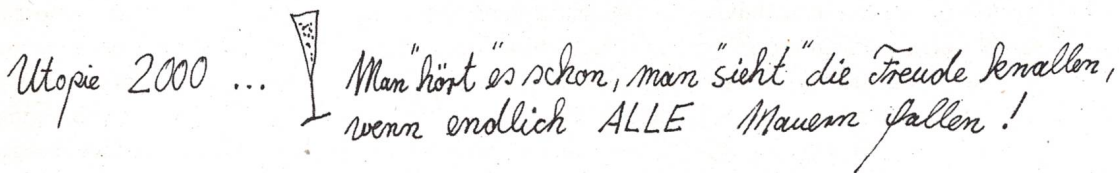 Utopie 2000 ... Man "hört" es schon, man "sieht" die Freude knallen,
wenn endlich ALLE Mauern fallen!